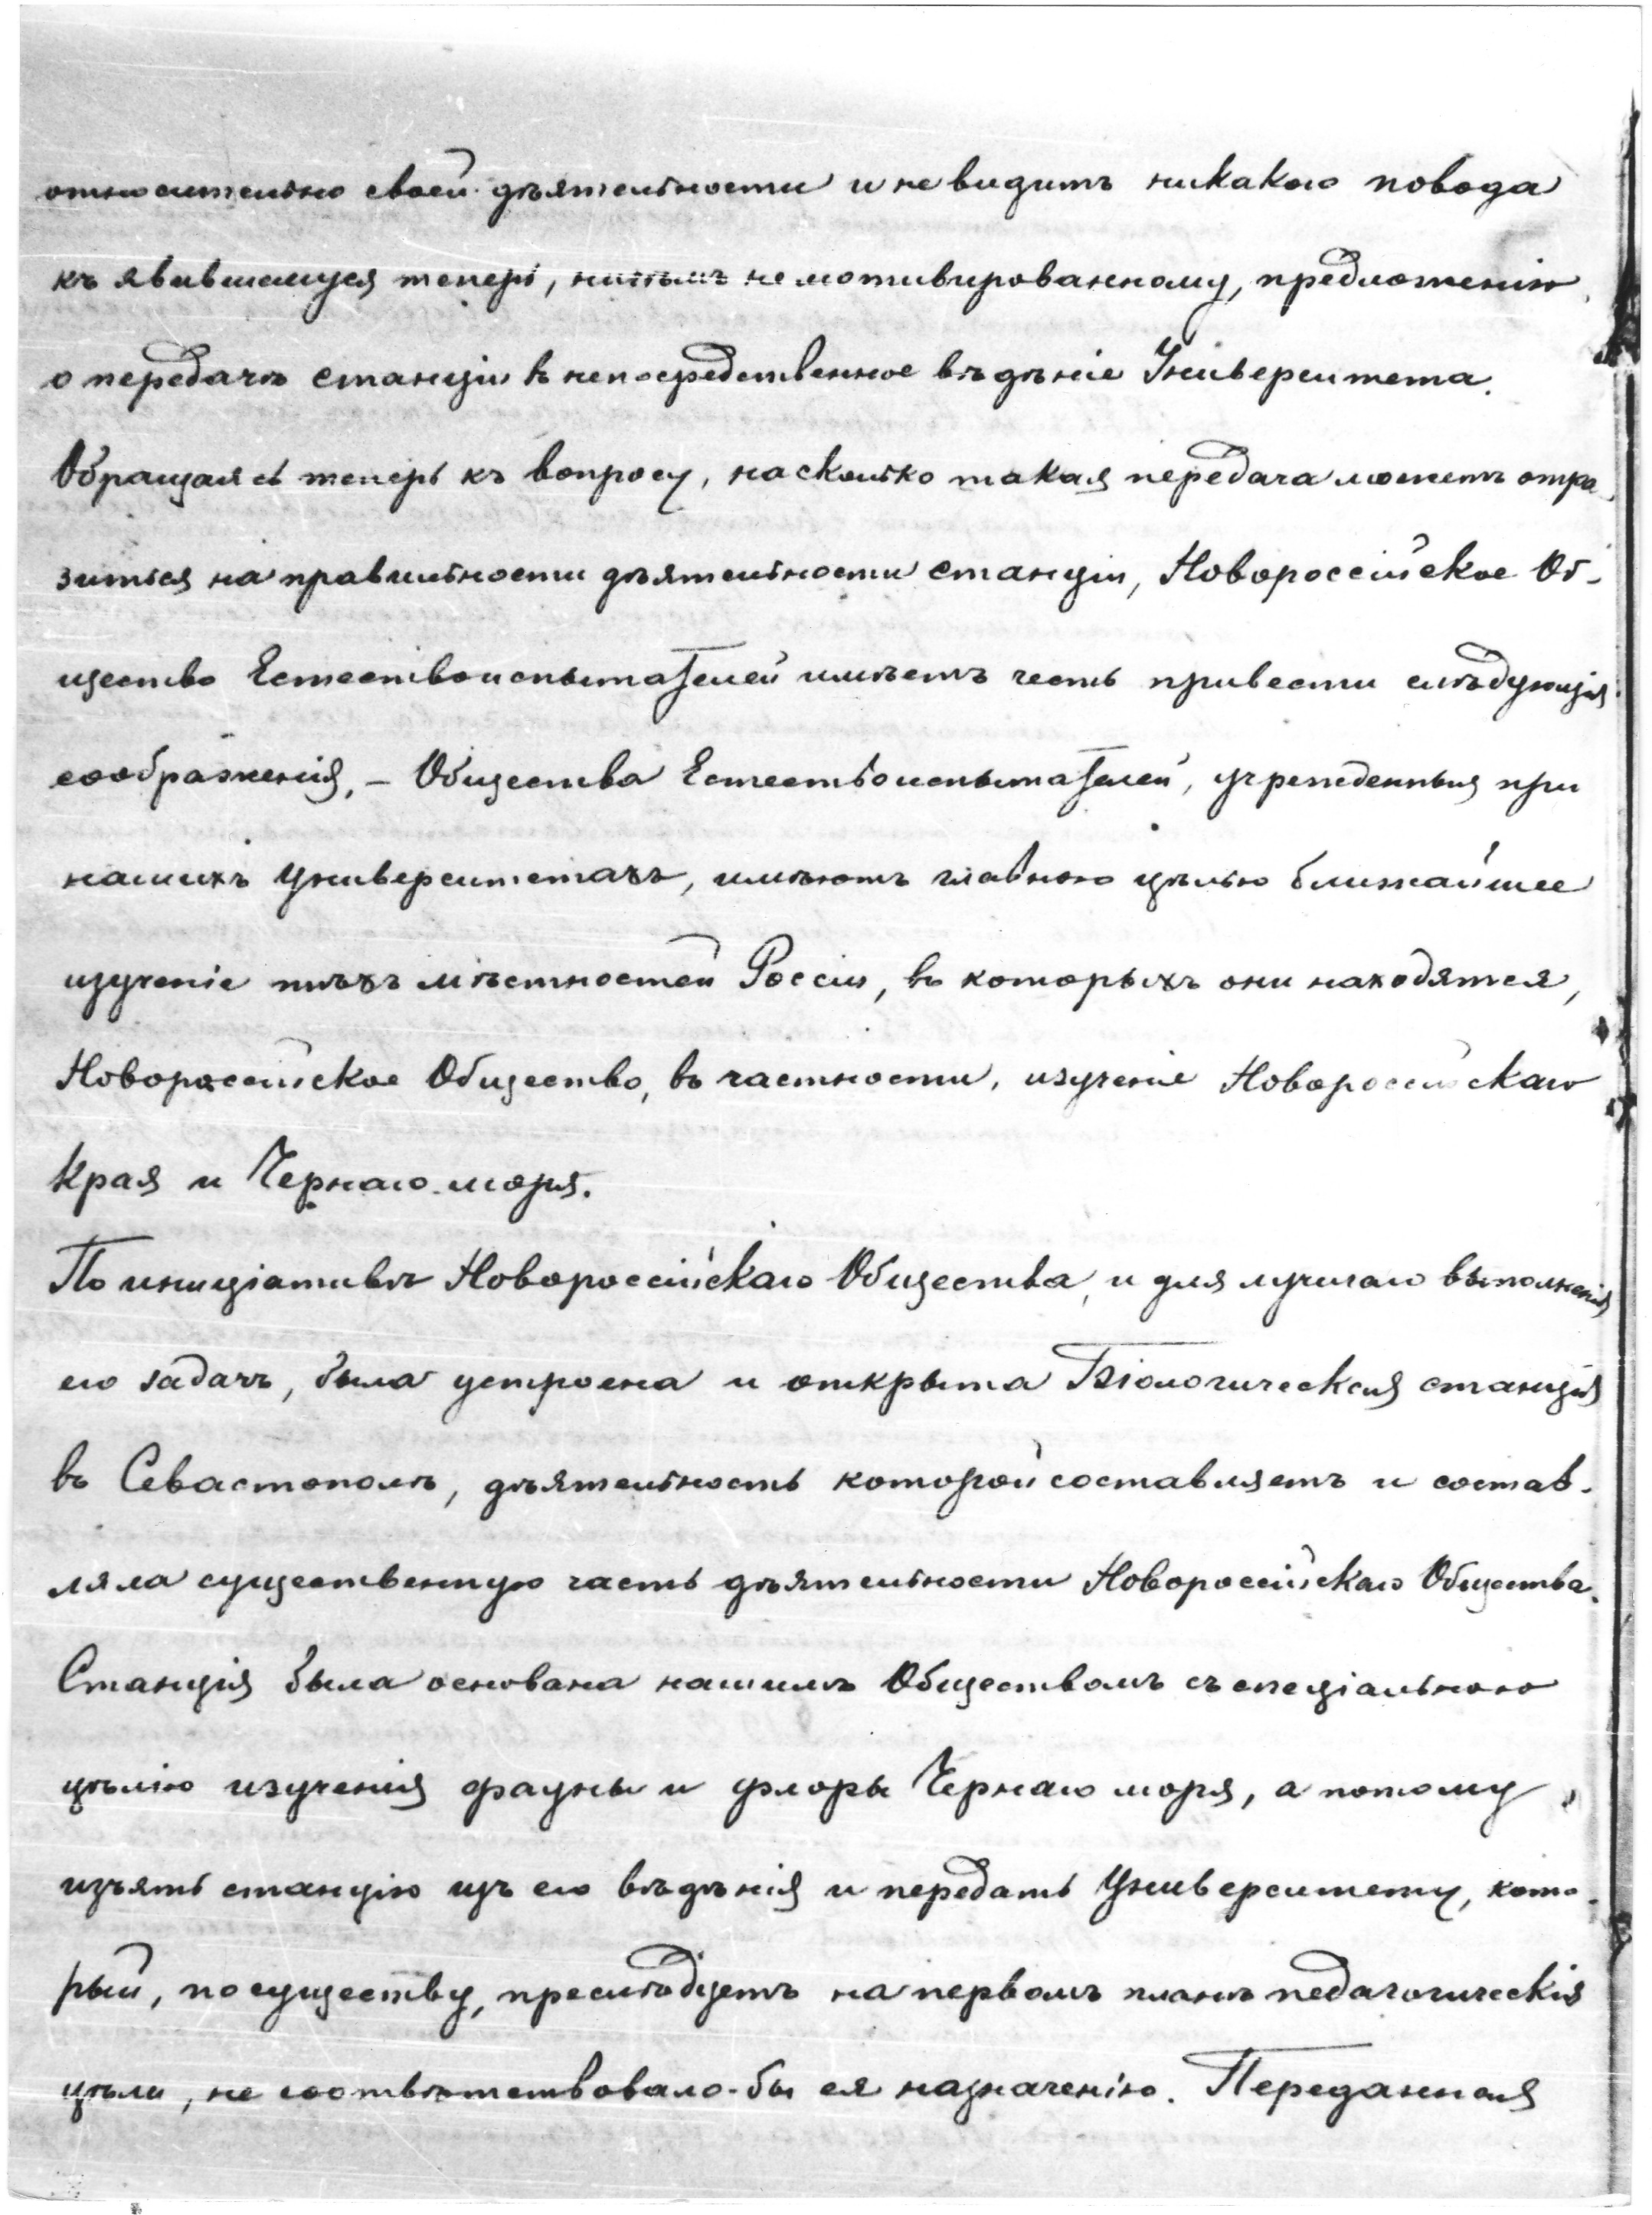 относительно своей дѣятельности и не видитъ никакого повода
къ явившемуся теперь, ничѣмъ немотивированному, предложенію
о передачѣ станціи въ непосредственное вѣдѣніе Университета.
Обращаясь теперь къ вопросу, насколько такая передача можетъ отра-
зиться на правильности дѣятельности станціи, Новороссійское Об-
щество Естествоиспытателей имѣетъ честь привести слѣдующія
соображенія, – Общества Естествоиспытателей, учрежденныя при
нашихъ Университетахъ, имѣютъ главною цѣлью ближайшее
изученіе тѣхъ мѣстностей Россіи, въ которыхъ они находятся,
Новороссійское Общество, въ частности, изученіе Новороссійскаго
края и Чернаго моря.
По иниціативѣ Новороссійскаго Общества, и для лучшаго выполненія
его задачъ, была устроена и открыта Біологическая станція
въ Севастополѣ, дѣятельность которой составляетъ и состав-
ляла существенную часть дѣятельности Новороссійскаго Общества.
Станція была основана нашимъ Обществомъ съ спеціальною
цѣлію изученія фауны и флоры Чернаго моря, а потому
изъять станцію изъ его вѣдѣнія и передать Университету, кото-
рый, по существу, преслѣдуетъ на первомъ планѣ педагогическія
цѣли, не соотвѣтствовало-бы ея назначенію. Переданная